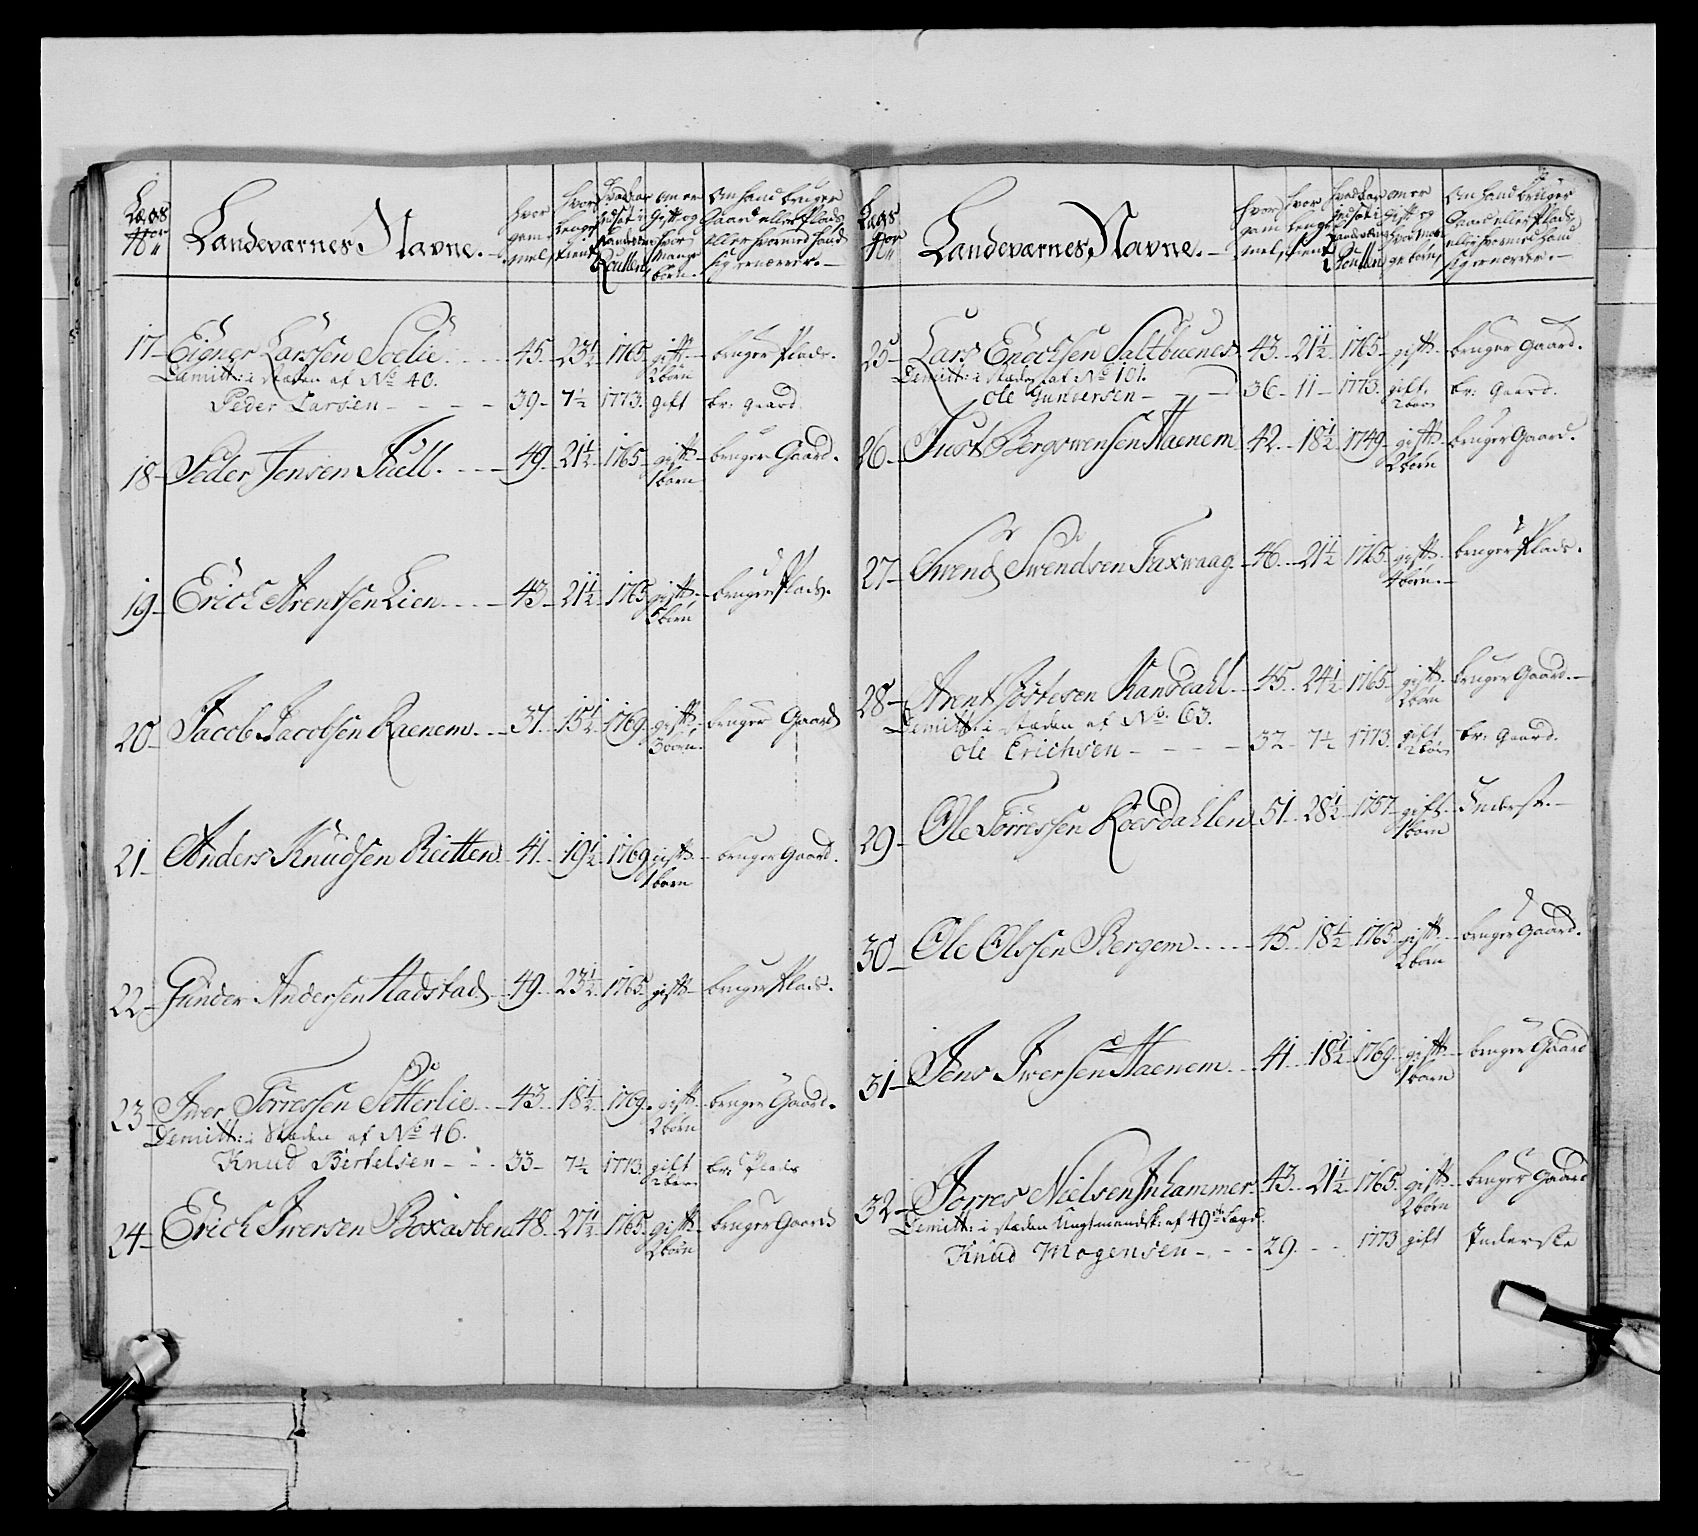 Lægs No
Landeværnes Navne.
hvor gam mel,
hvor lenge tient
hvad aar indsat i Landevær Roullen
om er Gift og hvor mange børn
Om hand bruger Gaard eller Plads eller hvormed hand sig ernærer.
17 Eigner Larssen Soelie 45 23½ 1765 gift 2 børn bruger Plads.
Demitt: i stæden af No 40.
Peder Larsen 39 7½ 1773. gift br: gaard
18 Peder Jensen Tuell 49 21½ 1765 gift 1 barn bruger Gaard.
19 Erich Arentsen Lien 43 21½ 1765 gift 5 børn bruger Plads.
20 Jacob Jacobsen Raenem 37 15½ 1769 gift 3 børn bruger Gaard
21 Anders Knudsen Reitten 41 19½ 1769 gift 1 barn bruger Gaard.
22 Gunder Andersen Hadstad 49 23½ 1765 gift bruger Plads.
23 Iver Torressen Setterlie 43 18½ 1769 gift 2 børn bruger Gaard.
Demitt: i stæden af No 46.
Knud Bertelsen 33 7½ 1773. gift 2 børn br: Plads
24 Erich Iwersen Boxasben 48 27½ 1765 gift 2 børn bruger Gaard
Lægs No
Landeværnes Navne.
hvor gam mel,
hvor lenge tient
hvad aar indsat i Landevær Roullen
om er gift og hvor man ge børn
Om hand bruger Gaard eller Plads eller hvormed hand sig ernærer.
25 Lars Enochsen Saltbuenes 43 21½ 1765 gift bruger Gaard.
Demitt: i stædet af No 101.
Ole Gundersen 36 11 1773. gift 2 børn br: Gaard.
26 Just Bergswensen Haenem 42 18½ 1749 gift 2 børn bruger Gaard.
27 Swend Swendsen Taxwaag 46 21½ 1765 gift 4 børn bruger Plads.
28 Arent Jostesen Kansdahl 45 24½ 1765 gift 2 børn bruger Gaard.
Demitt: i stæden af No. 63.
Ole Erichsen 32 7½ 1773. gift 2 børn br: Gaard.
29 Ole Torressen Roesdahlen 51 28½ 1757 gift 1 barn Inderst.
30 Ole Olssen Bergem 45 18½ 1765 gift 2 børn bruger Gaard.
31 Jens Iwersen Haenem 41 18½ 1769 gift 1 barn bruger Gaard
32 Torres Nielsen Inhammer 43 21½ 1765 gift 2 børn bruger Gaard
Demitt: i stæden Ungtmandsk: af 49de Lægd.
Knud Mogensen 29. 1773 gift Inderste